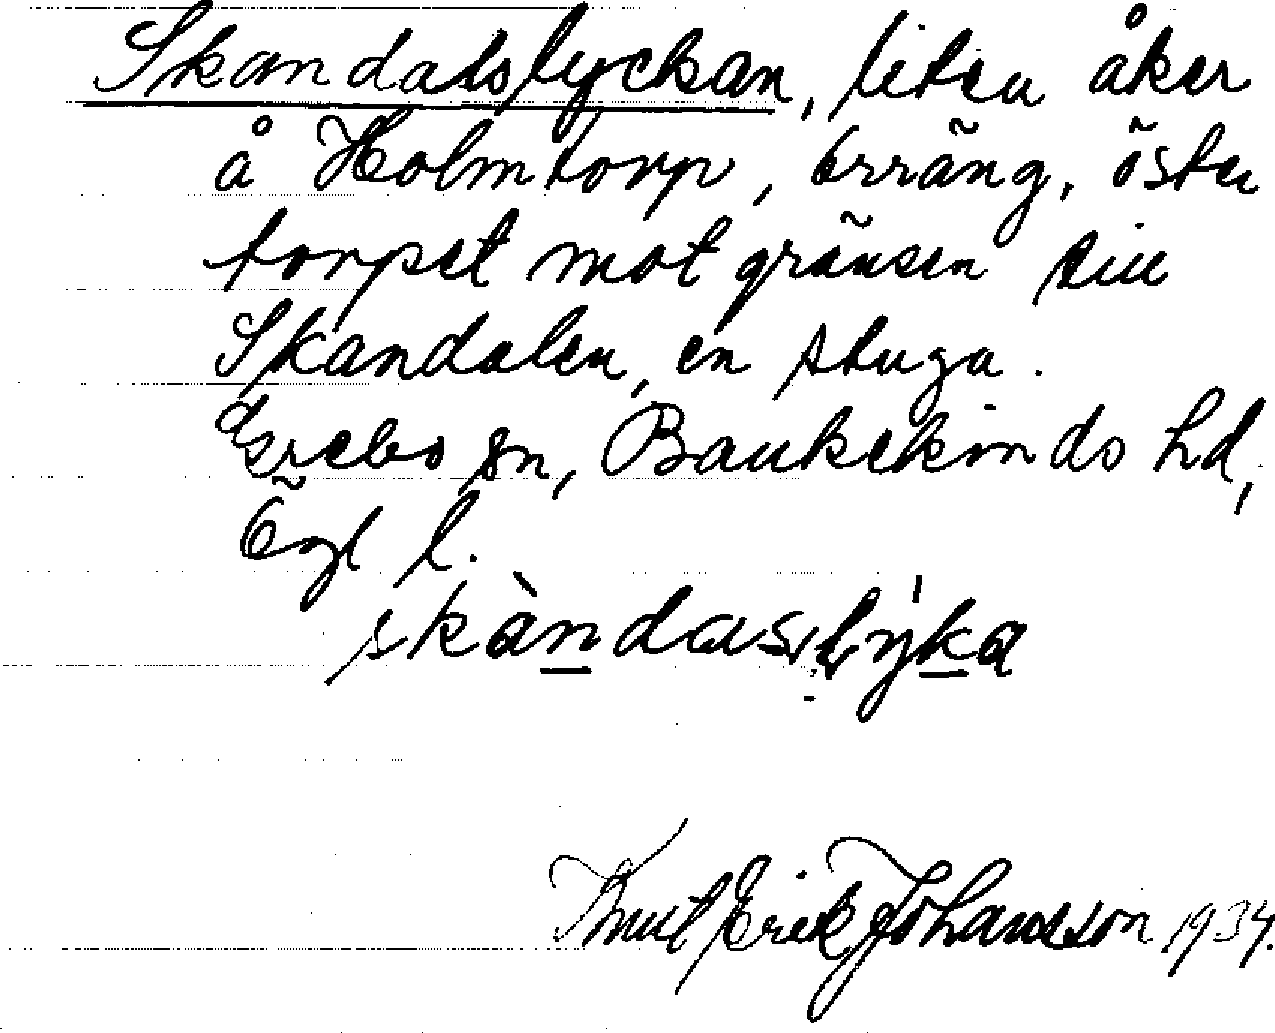 Skandalslyckan, liten åker
å Holmtorp, Örräng, öster
torpet mot gränsen till
Skandalen, en stuga.
Grebo sn, Bankekinds hd,
Ögl l.
skàndas,lýka
Knut Erik Johansson 1934.